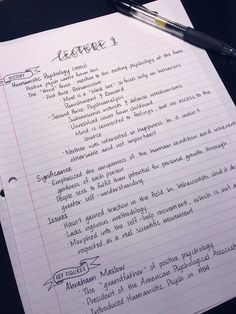 LECTURE 1
HISTORY
Humanistic Psychology (1950s)
Positive psych came from this
- The "third" force - reaction to the existing psychology at the time
- First force: Behaviourism
- Mind is a "black box" so focus only on behaviors
- Punishment & Reward
- Second force: Psychoanalysis
- Subconscious instincts & defense mechanisms
- Unresolved issues from childhood
- Mind is connected to feelings - but no access to the mind
- Neither was interested in happiness bc it wasn't
observable and not important
Significance
- Emphasized the uniqueness of the human condition and inherent
goodness of each person
- People seek to fulfill their potential for personal growth through
greater self-understanding
Issues
- Hasn't gained traction in the field bc behaviorists shot it
- Lacks rigorous methodology
- Morphed into the self-help movement, which is not
respected as a real scientific movement
KEY FIGURES
Abraham Maslow
- The "grandfather" of positive psychology
- President of the American Psychological Associat
- Introduced Humanistic Psych in 1954